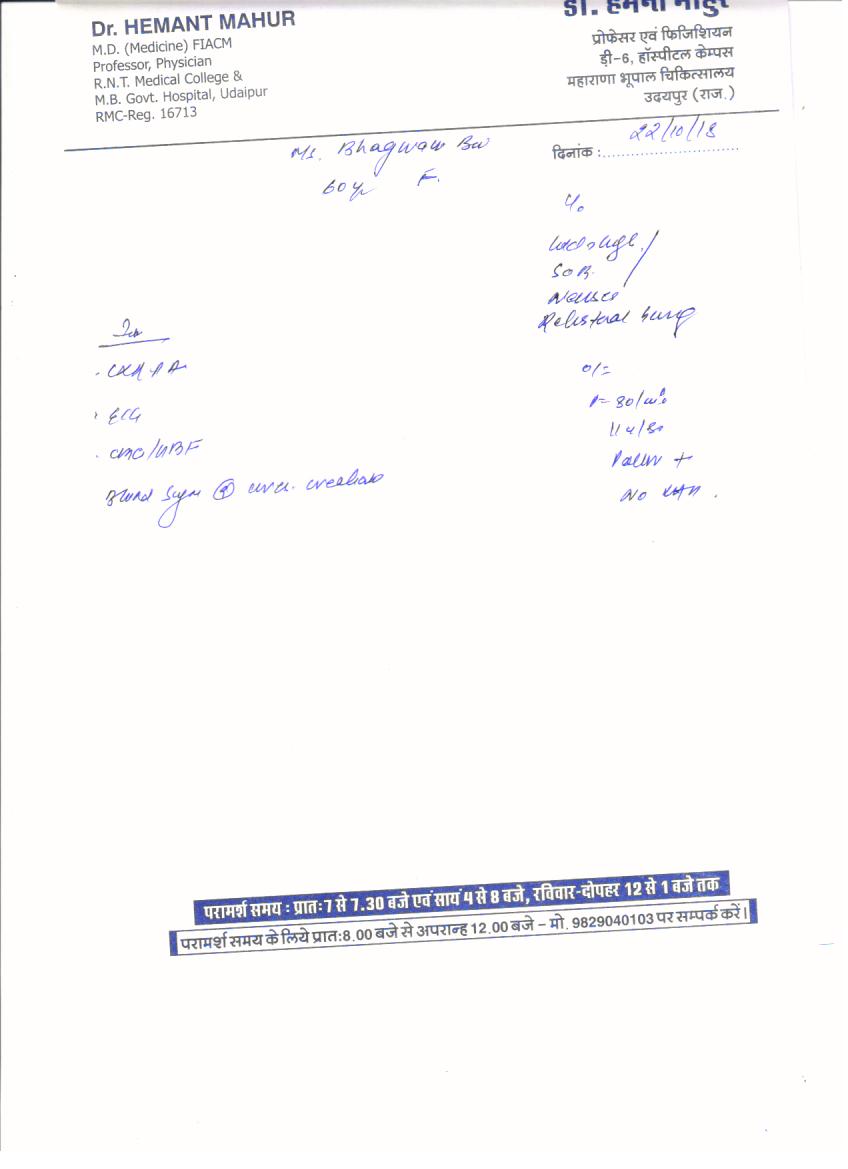 Dr. HEMANT MAHUR
M.D. (Medicine) FIACM
Professor, Physician
R.N.T. Medical College &
M.B. Govt. Hospital, Udaipur
RMC-Reg. 16713
डॉ. हेमन्त माहुर
प्रोफेसर एवं फिजिशियन
डी-6, हॉस्पीटल केम्पस
महाराणा भूपाल चिकित्सालय
उदयपुर (राज.)
दिनांक : 22/10/18
Ms. Bhagwan
60 yr F.
SOB
Nausea
Retrosternal
CXR PA
ECG
CBC/
Blood Sugar
O/E
P= 80/min
114/80
Pallor +
No
परामर्श समय : प्रातः 7 से 7.30 बजे एवं सायं 4 से 8 बजे, रविवार-दोपहर 12 से 1 बजे तक
परामर्श समय के लिये प्रातः 8.00 बजे से अपरान्ह 12.00 बजे – मो. 9829040103 पर सम्पर्क करें।